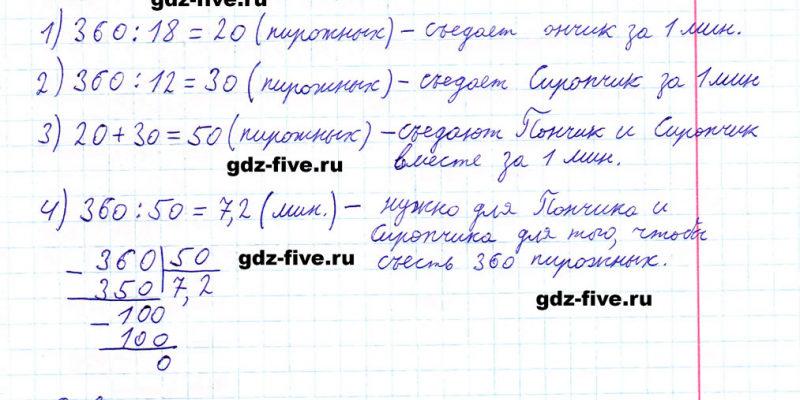 gdz-five.ru
1) 360 : 18 = 20 (пирожных) – съедает ончик за 1 мин.
2) 360 : 12 = 30 (пирожных) – съедает Сиропчик за 1 мин
3) 20 + 30 = 50 (пирожных) – съедают Пончик и Сиропчик
вместе за 1 мин.
gdz-five.ru
4) 360 : 50 = 7,2 (мин.) – нужно для Пончика и
Сиропчика для того, чтобы
съесть 360 пирожных.
gdz-five.ru
– 360 | 50
350 | 7,2
– 100
100
0
gdz-five.ru